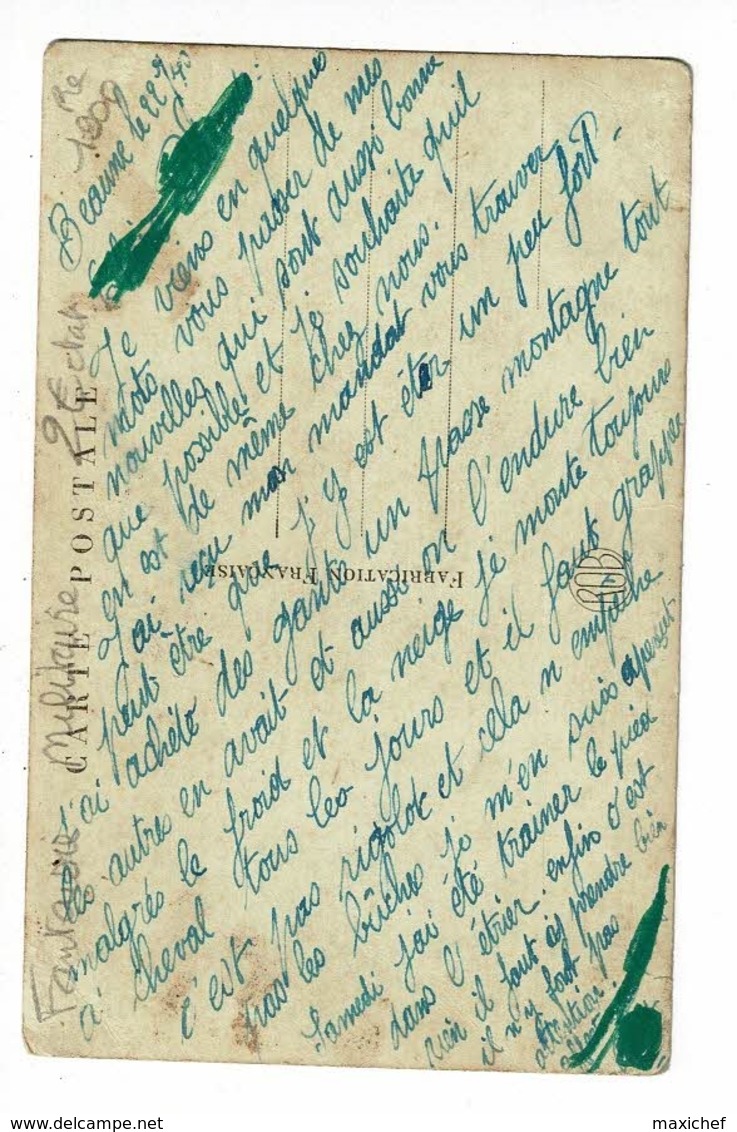 Beaune le 22
Je viens en quelques
mots vous passer de mes
nouvelles qui sont aussi bonne
que possible et je souhaite quil
en est de même chez nous.
J'ai reçu mon mandat vous trouver
peut être que j'y est été un peu fort -
J'ai acheté des gants un passe montagne tout
les autres en avait et aussi on l'endure bien
malgrés le froid et la neige je monte toujours
à cheval tous les jours et il faut grapper
c'est pas rigolot et cela n empêche
pas les bûches je m'en suis aperçut
Samedi j'ai été trainer le pied
dans l'étrier. enfin c'est
rien il faut s'y prendre bien
il n'y faut pas
attention.
CARTE POSTALE
FABRICATION FRANÇAISE
ROB
Fantaisie Militaire 2€
1900
www.delcampe.net
maxichef